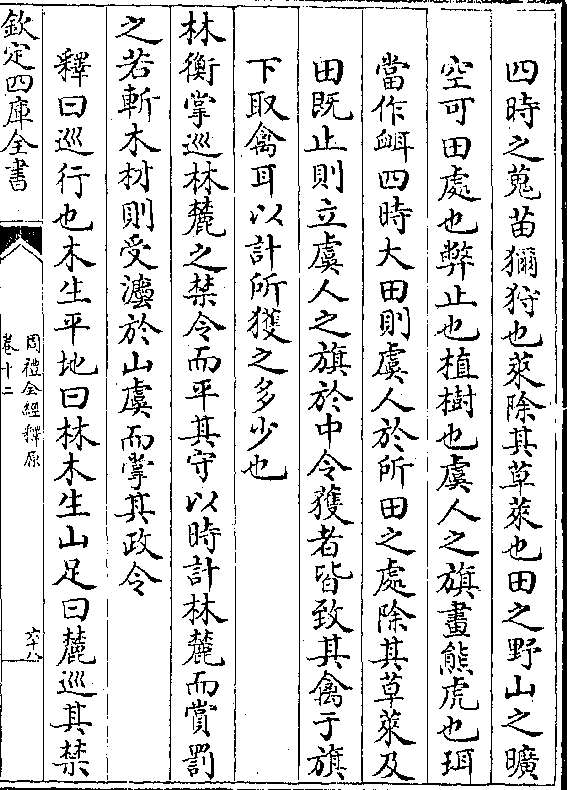 四時之蒐苗獮狩也萊除其草萊也田之野山之曠
空可田處也弊止也植樹也虞人之旗畫熊虎也珥
當作衈四時大田則虞人於所田之處除其草萊及
田既止則立虞人之旗於中令獲者皆致其禽于旗
下取禽耳以計所獲之多少也
林衡掌巡林麓之禁令而平其守以時計林麓而賞罰
之若斬木材則受灋於山虞而掌其政令
釋曰巡行也木生平地曰林木生山足曰麓巡其禁
欽定四庫全書
周禮全經釋原
卷十二
六十八